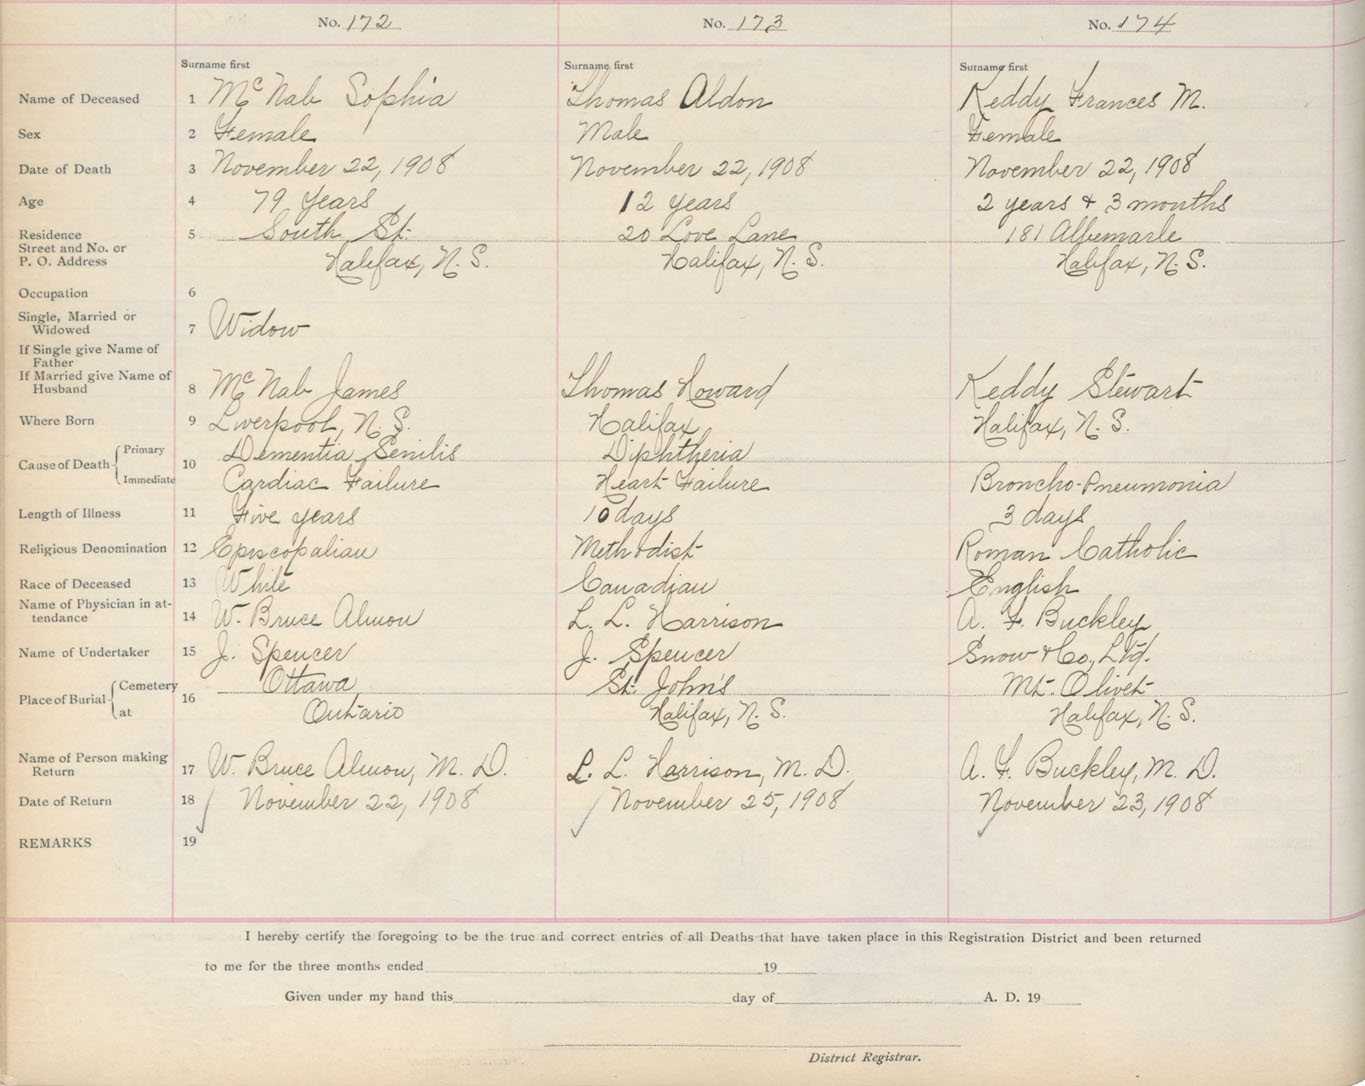 No. 172 No. 173 No. 174
Surname first Surname first Surname first
Name of Deceased 1 McNab Sophia Thomas Aldon Keddy Frances M.
Sex 2 Female Male Female
Date of Death 3 November 22, 1908 November 22, 1908 November 22, 1908
Age 4 79 Years 12 years 2 years + 3 months
Residence 5 South St. 20 Love Lane 181 Albemarle
Street and No. or
P. O. Address Halifax, N.S. Halifax, N.S. Halifax, N.S.
Occupation 6
Single, Married or
Widowed 7 Widow
If Single give Name of
Father
If Married give Name of
Husband 8 McNab James Thomas Howard Keddy Stewart
Where Born 9 Liverpool, N.S. Halifax Halifax, N.S.
Primary Dementia Senilis Diphtheria
Cause of Death 10
Immediate Cardiac Failure Heart Failure Broncho-Pneumonia
Length of Illness 11 Five years 10 days 3 days
Religious Denomination 12 Episcopalian Methodist Roman Catholic
Race of Deceased 13 White Canadian English
Name of Physician in at-
tendance 14 W. Bruce Almon L. L. Harrison A. F. Buckley
Name of Undertaker 15 J. Spencer J. Spencer Snow & Co., Ltd.
Cemetery Ottawa St. John's Mt. Olivet
Place of Burial 16
at Ontario Halifax, N.S. Halifax, N.S.
Name of Person making
Return 17 W. Bruce Almon, M.D. L. L. Harrison, M.D. A. F. Buckley, M.D.
Date of Return 18 November 22, 1908 November 25, 1908 November 23, 1908
REMARKS 19
I hereby certify the foregoing to be the true and correct entries of all Deaths that have taken place in this Registration District and been returned
to me for the three months ended 19
Given under my hand this day of A. D. 19
District Registrar.